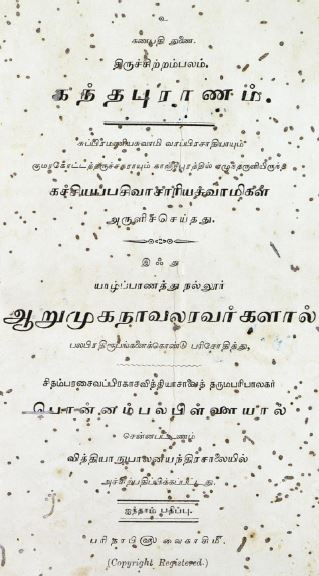 உ
கணபதி துணை.
திருச்சிற்றம்பலம்.
கந்தபுராணம்.
சுப்பிரமணியசுவாமி வரப்பிரசாதியாயும்
குமரகோட்டத்தருச்சகராயும் காஞ்சிபுரத்தில் எழுந்தருளியிருந்த
கச்சியப்பசிவாசாரியசுவாமிகள்
அருளிச்செய்தது.
இஃது
யாழ்ப்பாணத்து நல்லூர்
ஆறுமுகநாவலரவர்களால்
பலபிரதிரூபங்களைக்கொண்டு பரிசோதித்து,
சிதம்பரசைவப்பிரகாசவித்தியாசாலைத் தருமபரிபாலகர்
பொன்னம்பலபிள்ளையால்
சென்னபட்டணம்
வித்தியாநுபாலனயந்திரசாலையில்
அச்சிற்பதிப்பிக்கப்பட்டது.
ஐந்தாம் பதிப்பு.
பரிதாபி வைகாசிமீ.
(Copyright Registered.)